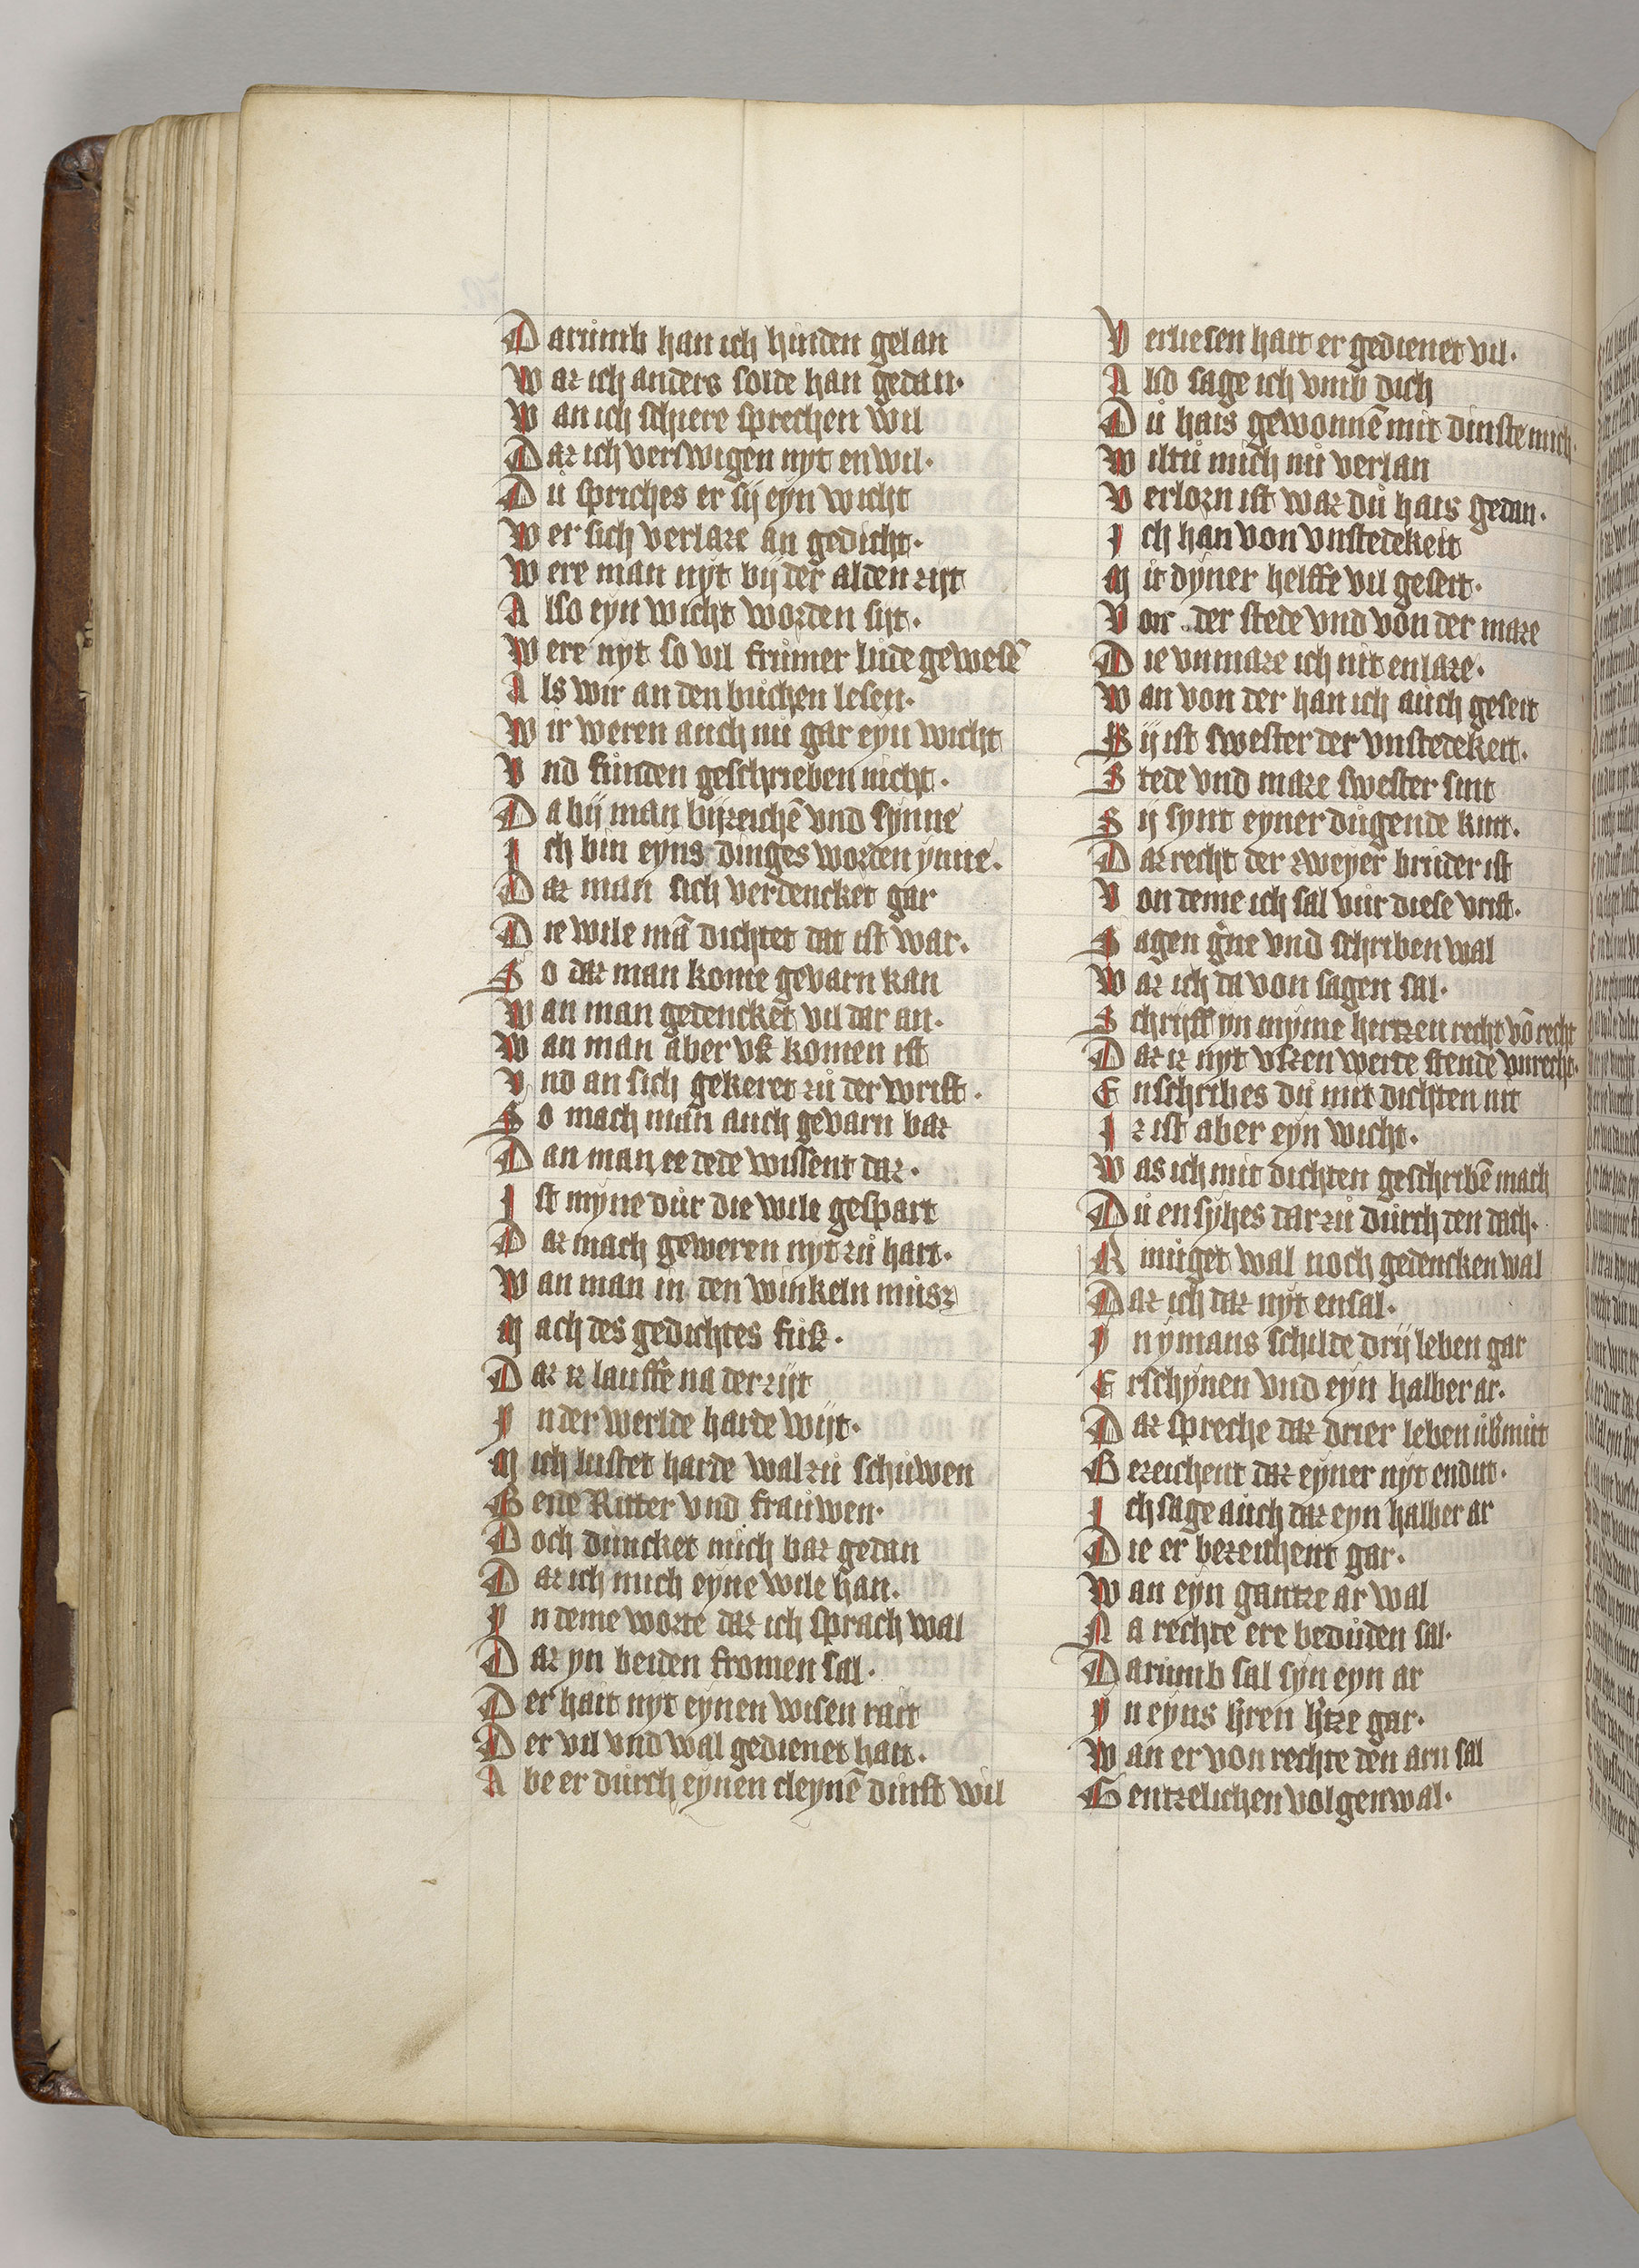 Darůmb han ich hinden gelan
Waz ich anders solde han gedan·
Wan ich schiere sprechen wil
Daz ich verswigen nyt en wil·
Dů spriches er sij eyn wicht
Wer sich verlaze an gedicht·
Were man nyt bij der alden zijt
Also eyn wicht worden sijt·
Were nyt so vil frůmer lude gewesē
Als wir an den bůchen lesen·
Wir weren auch nů gar eyn wicht
Vnd fůnden geschrieben nicht·
Da bij man bijzeichē vnd synne
Ich bin eyns dinges worden ynne·
Daz man sich verdencket gar
Die wile mā dichtet dat ist war·
So daz man kome gevarn kan
Wan man gedencket vil dar an·
Wan man aber vß komen ist
Vnd an sich gekeret zů der wrist·
So mach man auch gevarn baz
Dan man ee dede wissent daz·
Ist myne důr die wile gespart
Daz mach geweren nyt zů hart·
Wan man in den winkeln můsz
Mach des gedichtes fůß·
Daz iz lauffe na der zijt
In der werlde harde wijt·
Mich lustet harde wal zů schůwen
Gene Ritter vnd fraůwen·
Doch důncket mich baz gedan
Daz ich mich eyne wile han·
In deme worte daz ich sprach wal
Daz yn beiden fromen sal·
Der hait nyt eynen wisen rait
Der vil vnd wal gedienet hait·
Abe er důrch eynen cleynē dinst wil
Verliesen hait er gedienet vil·
Also sage ich vmb dich
Dů hais gewonnē mit dinste mich·
Wiltů mich nů verlan
Verlorn ist waz dů hais gedan·
Ich han von vnstedekeit
Mit dyner helffe vil geseit·
Von der stede vnd von der maze
Die vnmaze ich nit enlaze·
Wan von der han ich auch geseit
Sij ist swester der vnstedekeit·
Stede vnd maze swester sint
Sij synt eyner důgende kint·
Daz recht der zweyer brůder ist
Von deme ich sal vůr diese vrist·
Sagen g̃ne vnd schriben wal
Waz ich da von sagen sal·
Schrijff yn myme hertzen recht vō recht
Daz iz nyt vszen werde stende vnrecht·
Enschribes dů mit dichten nit
Iz ist aber eyn wicht·
Was ich mit dichten geschribē mach
Dů ensyhes dar zů důrch den dach·
R můget wal noch gedencken wal
Daz ich daz nyt ensal·
In ymans schilde drij leben gar
Erschynen vnd eyn halber ar·
Daz spreche daz drier leben ůbmůt
Bezeichent daz eyner nyt endůt·
Ich sage aůch daz eyn halber ar
Die er bezeichent gar·
Wan eyn gantze ar wal
Na rechte ere bedůden sal·
Darůmb sal syn eyn ar
In eyns h̃ren h̃tze gar·
Wan er von rechte den arn sal
Gentzelichen volgen wal·